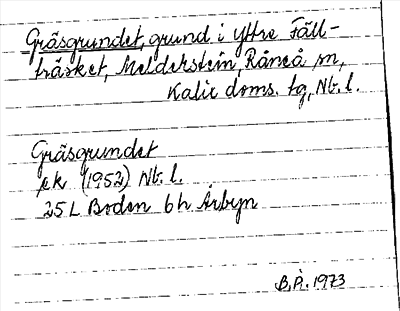 Gräsgrundet, grund i Yttre Fäll-
träsket, Melderstein, Råneå sn,
Kalix doms. tg, Nb. l.
Gräsgrundet
ek (1952) Nb. l.
25 L Boden 6h Årbyn
B.Å. 1973